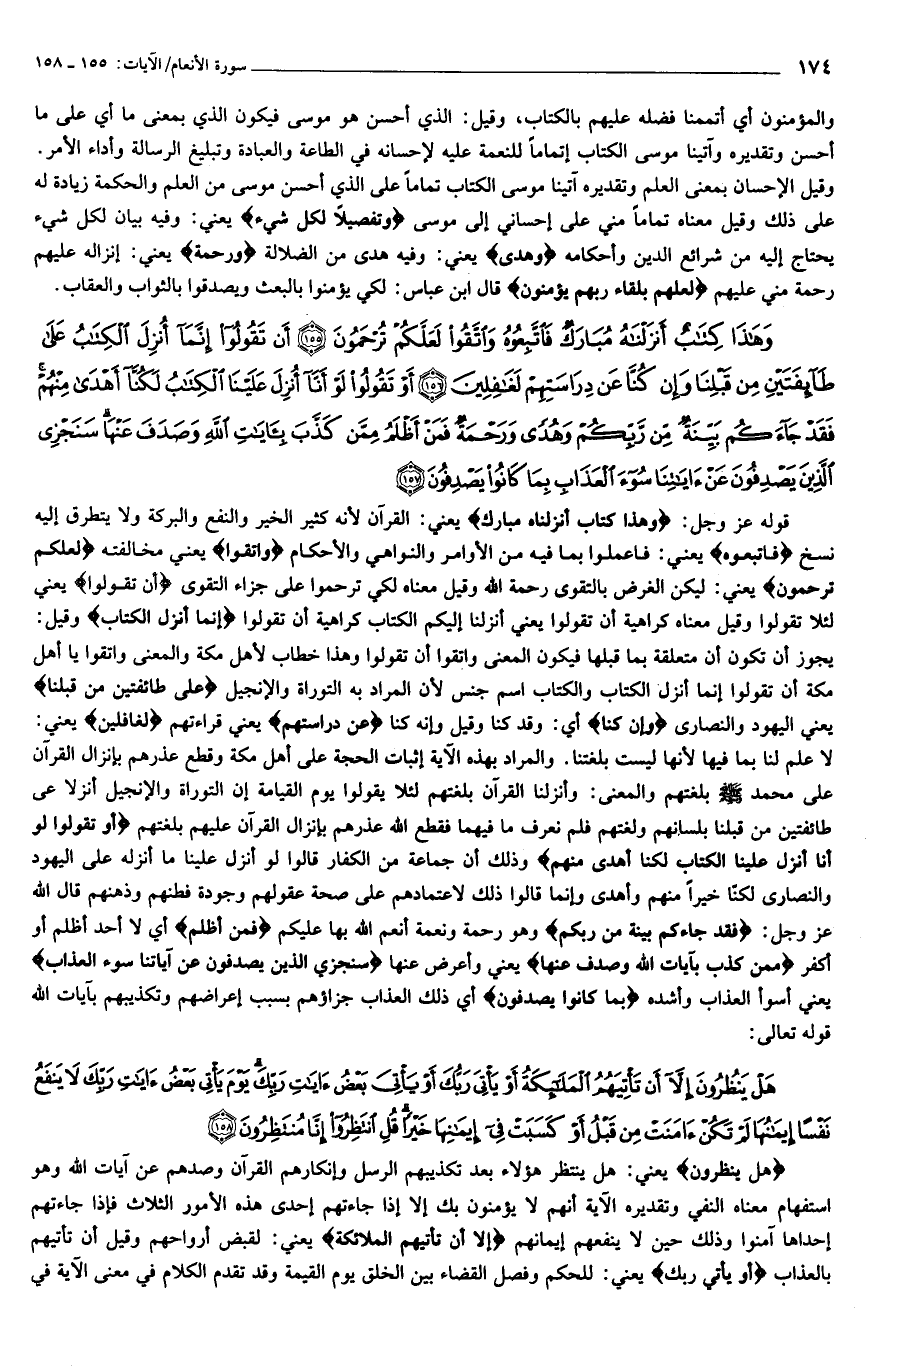 ١٧٤ سورة الأنعام/ الآيات: ١٥٥ ـ ١٥٨
والمؤمنون أي أتممنا فضله عليهم بالكتاب، وقيل: الذي أحسن هو موسى فيكون الذي بمعنى ما أي على ما
أحسن وتقديره وآتينا موسى الكتاب إتماماً للنعمة عليه لإحسانه في الطاعة والعبادة وتبليغ الرسالة وأداء الأمر.
وقيل الإحسان بمعنى العلم وتقديره آتينا موسى الكتاب تماماً على الذي أحسن موسى من العلم والحكمة زيادة له
على ذلك وقيل معناه تماماً مني على إحساني إلى موسى ﴿وتفصيلاً لكل شيء﴾ يعني: وفيه بيان لكل شيء
يحتاج إليه من شرائع الدين وأحكامه ﴿وهدى﴾ يعني: وفيه هدى من الضلالة ﴿ورحمة﴾ يعني: إنزاله عليهم
رحمة مني عليهم ﴿لعلهم بلقاء ربهم يؤمنون﴾ قال ابن عباس: لكي يؤمنوا بالبعث ويصدقوا بالثواب والعقاب.
وَهَٰذَا كِتَٰبٌ أَنزَلْنَٰهُ مُبَارَكٌ فَٱتَّبِعُوهُ وَٱتَّقُوا۟ لَعَلَّكُمْ تُرْحَمُونَ ١٥٥ أَن تَقُولُوٓا۟ إِنَّمَآ أُنزِلَ ٱلْكِتَٰبُ عَلَىٰ
طَآئِفَتَيْنِ مِن قَبْلِنَا وَإِن كُنَّا عَن دِرَاسَتِهِمْ لَغَٰفِلِينَ ١٥٦ أَوْ تَقُولُوا۟ لَوْ أَنَّآ أُنزِلَ عَلَيْنَا ٱلْكِتَٰبُ لَكُنَّآ أَهْدَىٰ مِنْهُمْ ۚ
فَقَدْ جَآءَكُم بَيِّنَةٌ مِّن رَّبِّكُمْ وَهُدًى وَرَحْمَةٌ ۚ فَمَنْ أَظْلَمُ مِمَّن كَذَّبَ بِـَٔايَٰتِ ٱللَّهِ وَصَدَفَ عَنْهَا ۗ سَنَجْزِى
ٱلَّذِينَ يَصْدِفُونَ عَنْ ءَايَٰتِنَا سُوٓءَ ٱلْعَذَابِ بِمَا كَانُوا۟ يَصْدِفُونَ ١٥٧
قوله عز وجل: ﴿وهذا كتاب أنزلناه مبارك﴾ يعني: القرآن لأنه كثير الخير والنفع والبركة ولا يتطرق إليه
نسخ ﴿فاتبعوه﴾ يعني: فاعملوا بما فيه من الأوامر والنواهي والأحكام ﴿واتقوا﴾ يعني مخالفته ﴿لعلكم
ترحمون﴾ يعني: ليكن الغرض بالتقوى رحمة الله وقيل معناه لكي ترحموا على جزاء التقوى ﴿أن تقولوا﴾ يعني
لئلا تقولوا وقيل معناه كراهية أن تقولوا يعني أنزلنا إليكم الكتاب كراهية أن تقولوا ﴿إنما أنزل الكتاب﴾ وقيل:
يجوز أن تكون أن متعلقة بما قبلها فيكون المعنى واتقوا أن تقولوا وهذا خطاب لأهل مكة والمعنى واتقوا يا أهل
مكة أن تقولوا إنما أنزل الكتاب والكتاب اسم جنس لأن المراد به التوراة والإنجيل ﴿على طائفتين من قبلنا﴾
يعني اليهود والنصارى ﴿وإن كنا﴾ أي: وقد كنا وقيل وإنه كنا ﴿عن دراستهم﴾ يعني قراءتهم ﴿لغافلين﴾ يعني:
لا علم لنا بما فيها لأنها ليست بلغتنا. والمراد بهذه الآية إثبات الحجة على أهل مكة وقطع عذرهم بإنزال القرآن
على محمد ﷺ بلغتهم والمعنى: وأنزلنا القرآن بلغتهم لئلا يقولوا يوم القيامة إن التوراة والإنجيل أنزلا عى
طائفتين من قبلنا بلسانهم ولغتهم فلم نعرف ما فيهما فقطع الله عذرهم بإنزال القرآن عليهم بلغتهم ﴿أو تقولوا لو
أنا أنزل علينا الكتاب لكنا أهدى منهم﴾ وذلك أن جماعة من الكفار قالوا لو أنزل علينا ما أنزله على اليهود
والنصارى لكنّا خيراً منهم وأهدى وإنما قالوا ذلك لاعتمادهم على صحة عقولهم وجودة فطنهم وذهنهم قال الله
عز وجل: ﴿فقد جاءكم بينة من ربكم﴾ وهو رحمة ونعمة أنعم الله بها عليكم ﴿فمن أظلم﴾ أي لا أحد أظلم أو
أكفر ﴿ممن كذب بآيات الله وصدف عنها﴾ يعني وأعرض عنها ﴿سنجزي الذين يصدفون عن آياتنا سوء العذاب﴾
يعني أسوأ العذاب وأشده ﴿بما كانوا يصدفون﴾ أي ذلك العذاب جزاؤهم بسبب إعراضهم وتكذيبهم بآيات الله
قوله تعالى:
هَلْ يَنظُرُونَ إِلَّآ أَن تَأْتِيَهُمُ ٱلْمَلَٰٓئِكَةُ أَوْ يَأْتِىَ رَبُّكَ أَوْ يَأْتِىَ بَعْضُ ءَايَٰتِ رَبِّكَ ۗ يَوْمَ يَأْتِى بَعْضُ ءَايَٰتِ رَبِّكَ لَا يَنفَعُ
نَفْسًا إِيمَٰنُهَا لَمْ تَكُنْ ءَامَنَتْ مِن قَبْلُ أَوْ كَسَبَتْ فِىٓ إِيمَٰنِهَا خَيْرًا ۗ قُلِ ٱنتَظِرُوٓا۟ إِنَّا مُنتَظِرُونَ ١٥٨
﴿هل ينظرون﴾ يعني: هل ينتظر هؤلاء بعد تكذيبهم الرسل وإنكارهم القرآن وصدهم عن آيات الله وهو
استفهام معناه النفي وتقديره الآية أنهم لا يؤمنون بك إلا إذا جاءتهم إحدى هذه الأمور الثلاث فإذا جاءتهم
إحداها آمنوا وذلك حين لا ينفعهم إيمانهم ﴿إلا أن تأتيهم الملائكة﴾ يعني: لقبض أرواحهم وقيل أن تأتيهم
بالعذاب ﴿أو يأتي ربك﴾ يعني: للحكم وفصل القضاء بين الخلق يوم القيمة وقد تقدم الكلام في معنى الآية في